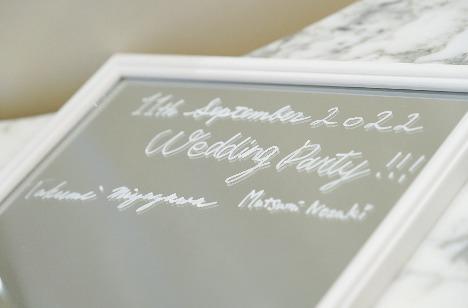 11th September 2022
Wedding Party!!!
Takumi Miyagawa Mutsumi Nozaki